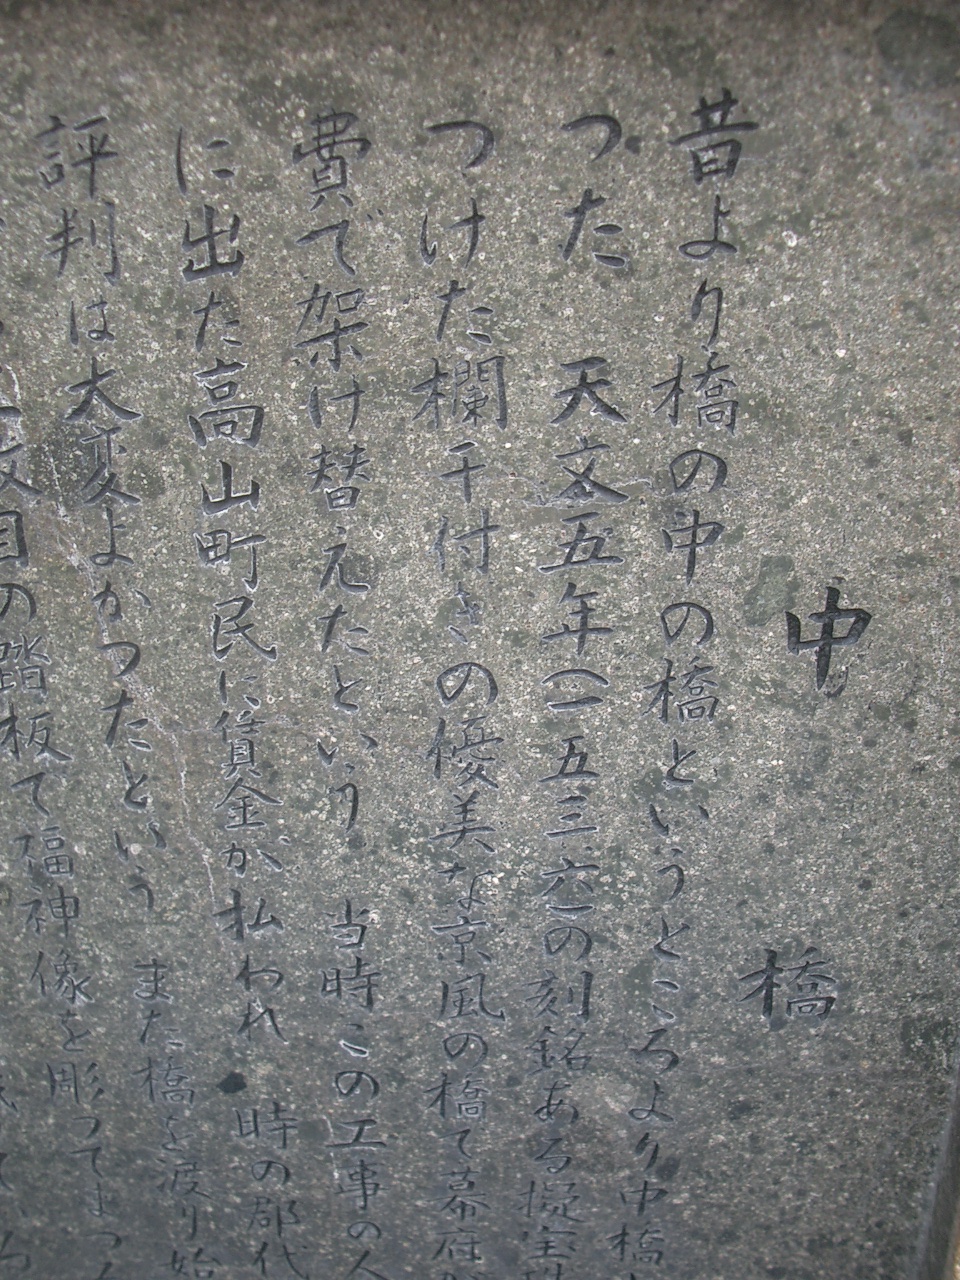 中橋
昔より橋の中の橋というところより中橋
つた 天文五年(一五三六)の刻銘ある擬宝
つけた欄干付きの優美な京風の橋で幕府が
費で架け替えたという 当時この工事の人
に出た高山町民に賃金が払われ 時の郡代
評判は大変よかつたという また橋を渡り始
枚目の踏板で福神像を彫つてまつ